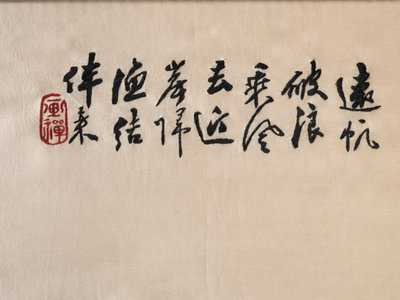 遠帆
破浪
乘風
去近
岸歸
漁結
伴來
畫禪